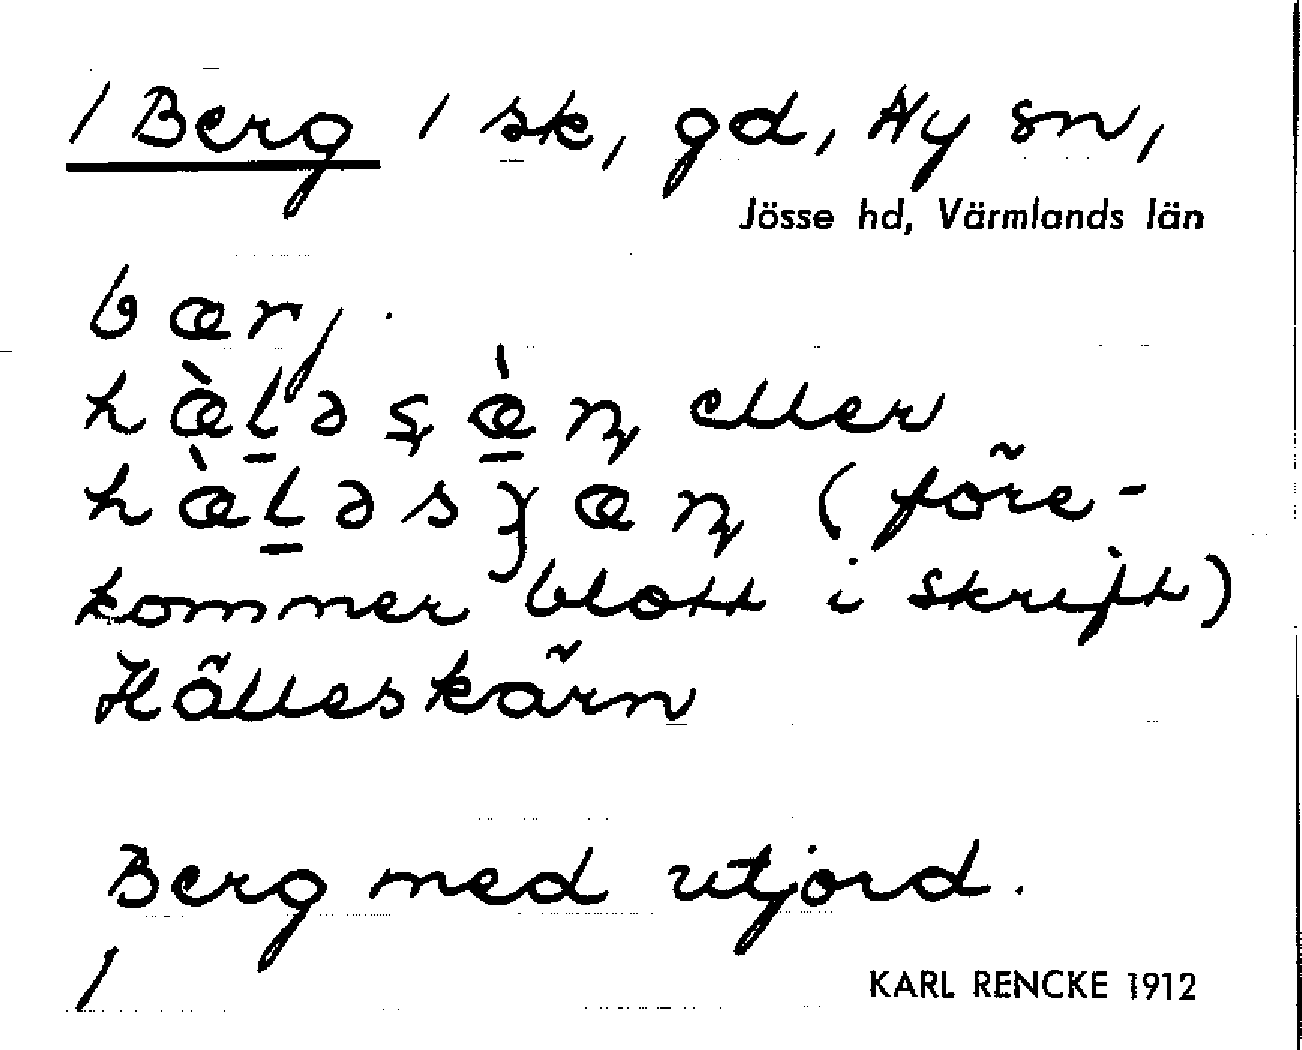 / Berg / sk, gd, Ny sn,
Jösse hd, Värmlands län
bærj.
hæ̀ḻəʂæ̠̀ɳ eller
hæ̀ḻəsʒæɳ (före-
kommer blott i skrift)
Hälleskärn
Berg med utjord.
/
KARL RENCKE 1912